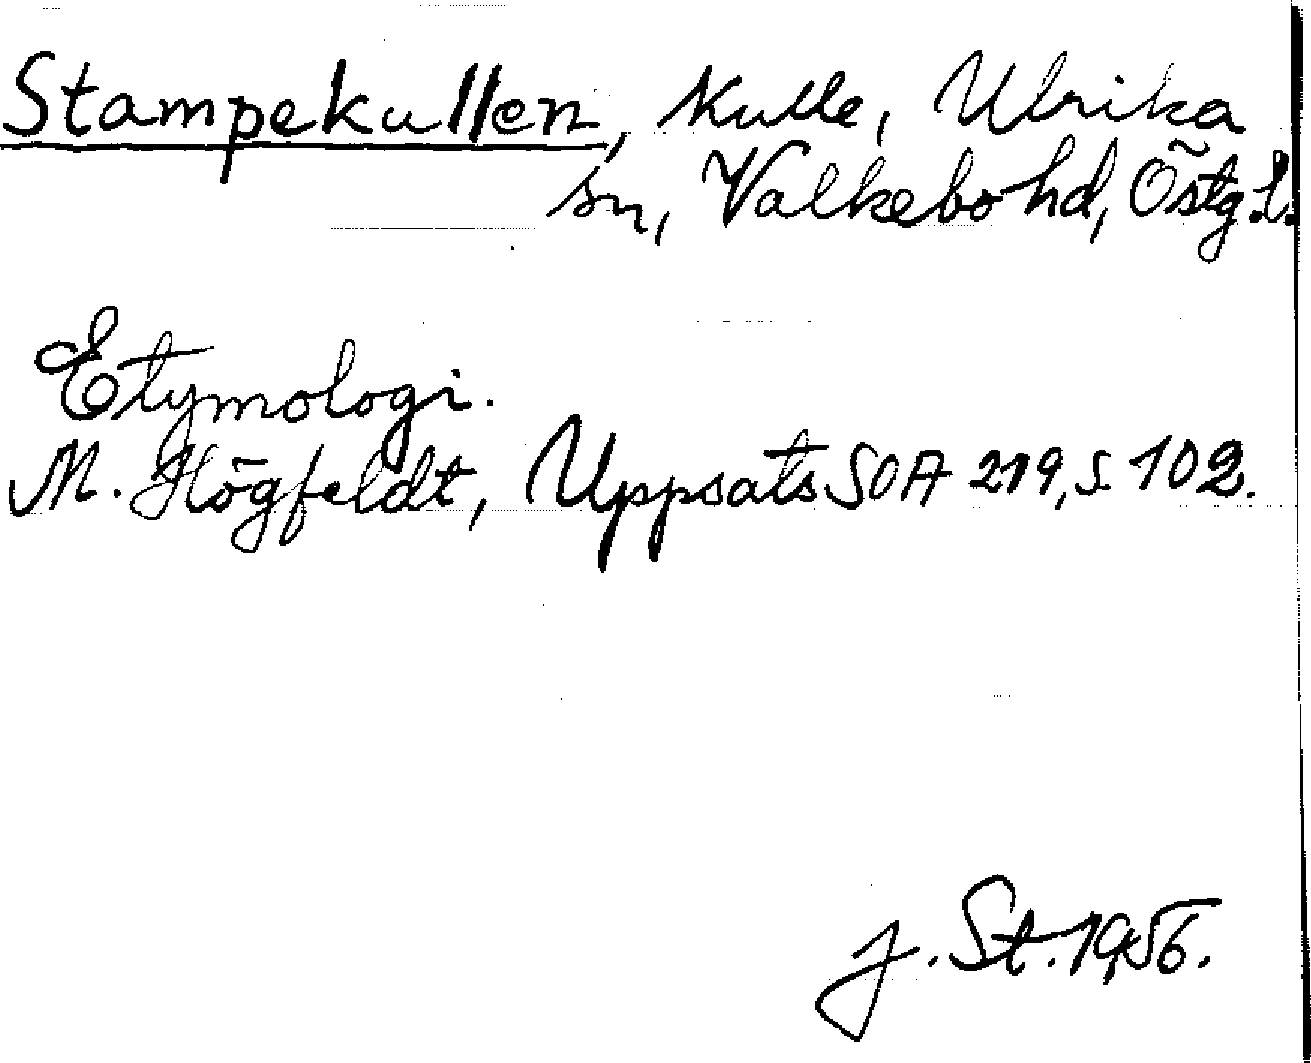 Stampekullen, kulle, Ulrika
sn, Valkebo hd, Östg. l.
Etymologi.
M. Högfeldt, Uppsats SOA 219, s. 102.
J. St. 1956.